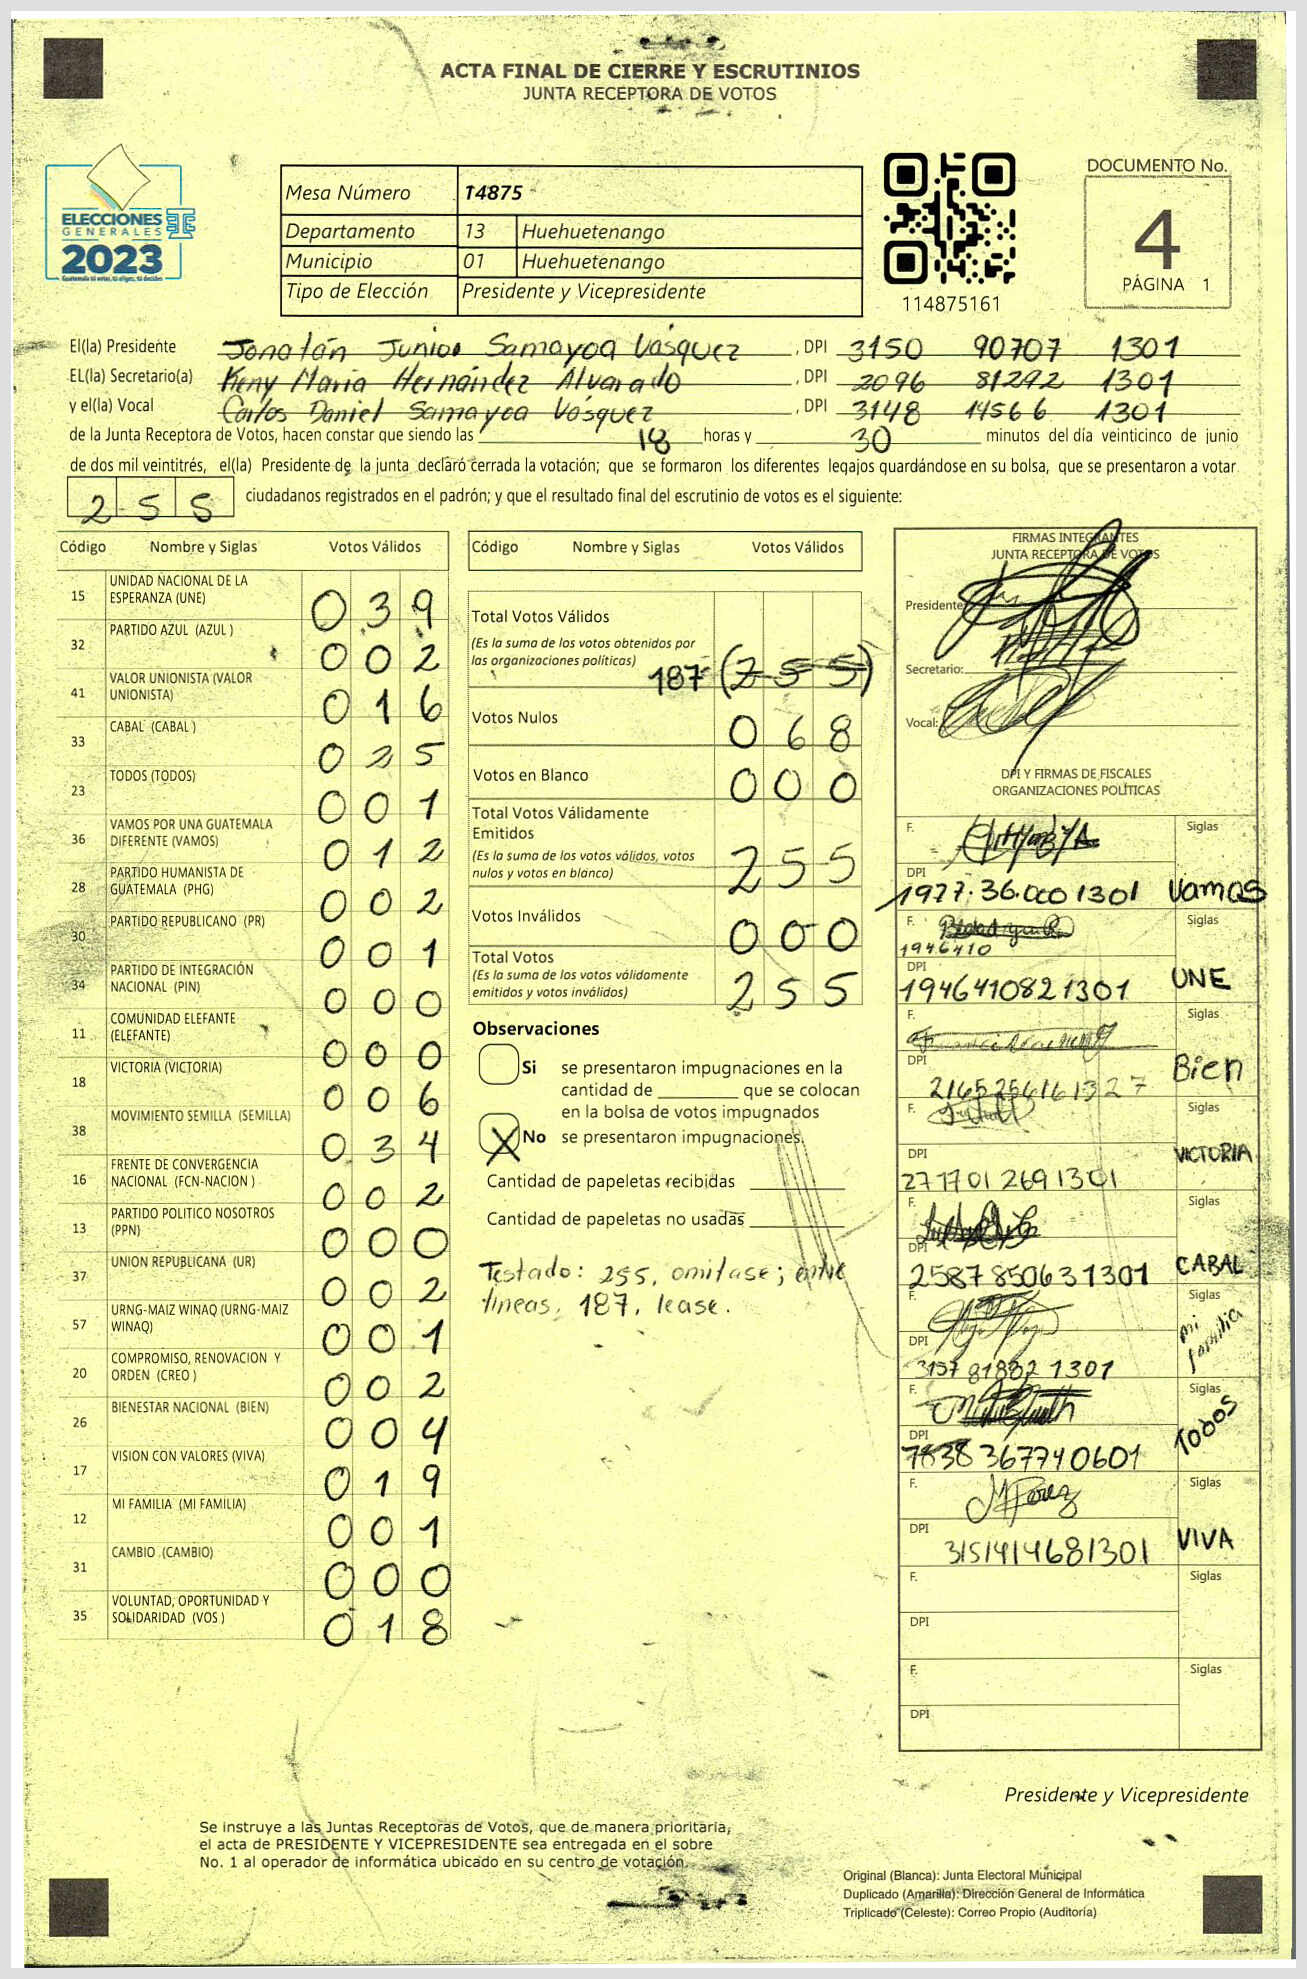 ACTA FINAL DE CIERRE Y ESCRUTINIOS
JUNTA RECEPTORA DE VOTOS
ELECCIONES
GENERALES
2023
Mesa Número 14875
Departamento 13 Huehuetenango
Municipio 01 Huehuetenango
Tipo de Elección Presidente y Vicepresidente
114875161
DOCUMENTO No.
4
PÁGINA 1
El(la) Presidente Jonatán Junior Samayoa Vásquez , DPI 3150 90707 1301
EL(la) Secretario(a) Keny María Hernández Alvarado , DPI 2096 81292 1301
y el(la) Vocal Carlos Daniel Samayoa Vásquez , DPI 3148 14566 1301
de la Junta Receptora de Votos, hacen constar que siendo las 18 horas y 30 minutos del día veinticinco de junio
de dos mil veintitrés, el(la) Presidente de la junta declaró cerrada la votación; que se formaron los diferentes legajos guardándose en su bolsa, que se presentaron a votar
255 ciudadanos registrados en el padrón; y que el resultado final del escrutinio de votos es el siguiente:
Código Nombre y Siglas Votos Válidos
15 UNIDAD NACIONAL DE LA ESPERANZA (UNE) 039
32 PARTIDO AZUL (AZUL ) 002
41 VALOR UNIONISTA (VALOR UNIONISTA) 016
33 CABAL (CABAL ) 025
23 TODOS (TODOS) 001
36 VAMOS POR UNA GUATEMALA DIFERENTE (VAMOS) 012
28 PARTIDO HUMANISTA DE GUATEMALA (PHG) 002
30 PARTIDO REPUBLICANO (PR) 001
34 PARTIDO DE INTEGRACIÓN NACIONAL (PIN) 000
11 COMUNIDAD ELEFANTE (ELEFANTE) 000
18 VICTORIA (VICTORIA) 006
38 MOVIMIENTO SEMILLA (SEMILLA) 034
16 FRENTE DE CONVERGENCIA NACIONAL (FCN-NACION ) 002
13 PARTIDO POLITICO NOSOTROS (PPN) 000
37 UNION REPUBLICANA (UR) 002
57 URNG-MAIZ WINAQ (URNG-MAIZ WINAQ) 001
20 COMPROMISO, RENOVACION Y ORDEN (CREO ) 002
26 BIENESTAR NACIONAL (BIEN) 004
17 VISION CON VALORES (VIVA) 019
12 MI FAMILIA (MI FAMILIA) 001
31 CAMBIO (CAMBIO) 000
35 VOLUNTAD, OPORTUNIDAD Y SOLIDARIDAD (VOS ) 018
Código Nombre y Siglas Votos Válidos
Total Votos Válidos
(Es la suma de los votos obtenidos por
las organizaciones políticas) 187 (255)
Votos Nulos 068
Votos en Blanco 000
Total Votos Válidamente
Emitidos
(Es la suma de los votos válidos, votos
nulos y votos en blanco) 255
Votos Inválidos 000
Total Votos
(Es la suma de los votos válidamente
emitidos y votos inválidos) 255
Observaciones
Si se presentaron impugnaciones en la
cantidad de ________ que se colocan
en la bolsa de votos impugnados
X No se presentaron impugnaciones.
Cantidad de papeletas recibidas
Cantidad de papeletas no usadas
Testado: 255, omitase; entre
lineas, 187, lease.
FIRMAS INTEGRANTES
JUNTA RECEPTORA DE VOTOS
Presidente:
Secretario:
Vocal:
DPI Y FIRMAS DE FISCALES
ORGANIZACIONES POLÍTICAS
F. Siglas
DPI 1977.36.000 1301 Vamos
F. Siglas
1946410
DPI 194641082 1301 UNE
F. Siglas
DPI 2165256161327 Bien
F. Siglas
DPI 2717012691301 VICTORIA
F. Siglas
DPI 2587850631301 CABAL
F. Siglas
DPI 3157 81882 1301 mi familia
F. Siglas
DPI 7838367740601 TODOS
F. MPerez Siglas
DPI 3151414681301 VIVA
F. Siglas
DPI
F. Siglas
DPI
Presidente y Vicepresidente
Se instruye a las Juntas Receptoras de Votos, que de manera prioritaria,
el acta de PRESIDENTE Y VICEPRESIDENTE sea entregada en el sobre
No. 1 al operador de informática ubicado en su centro de votación.
Original (Blanca): Junta Electoral Municipal
Duplicado (Amarilla): Dirección General de Informática
Triplicado (Celeste): Correo Propio (Auditoría)